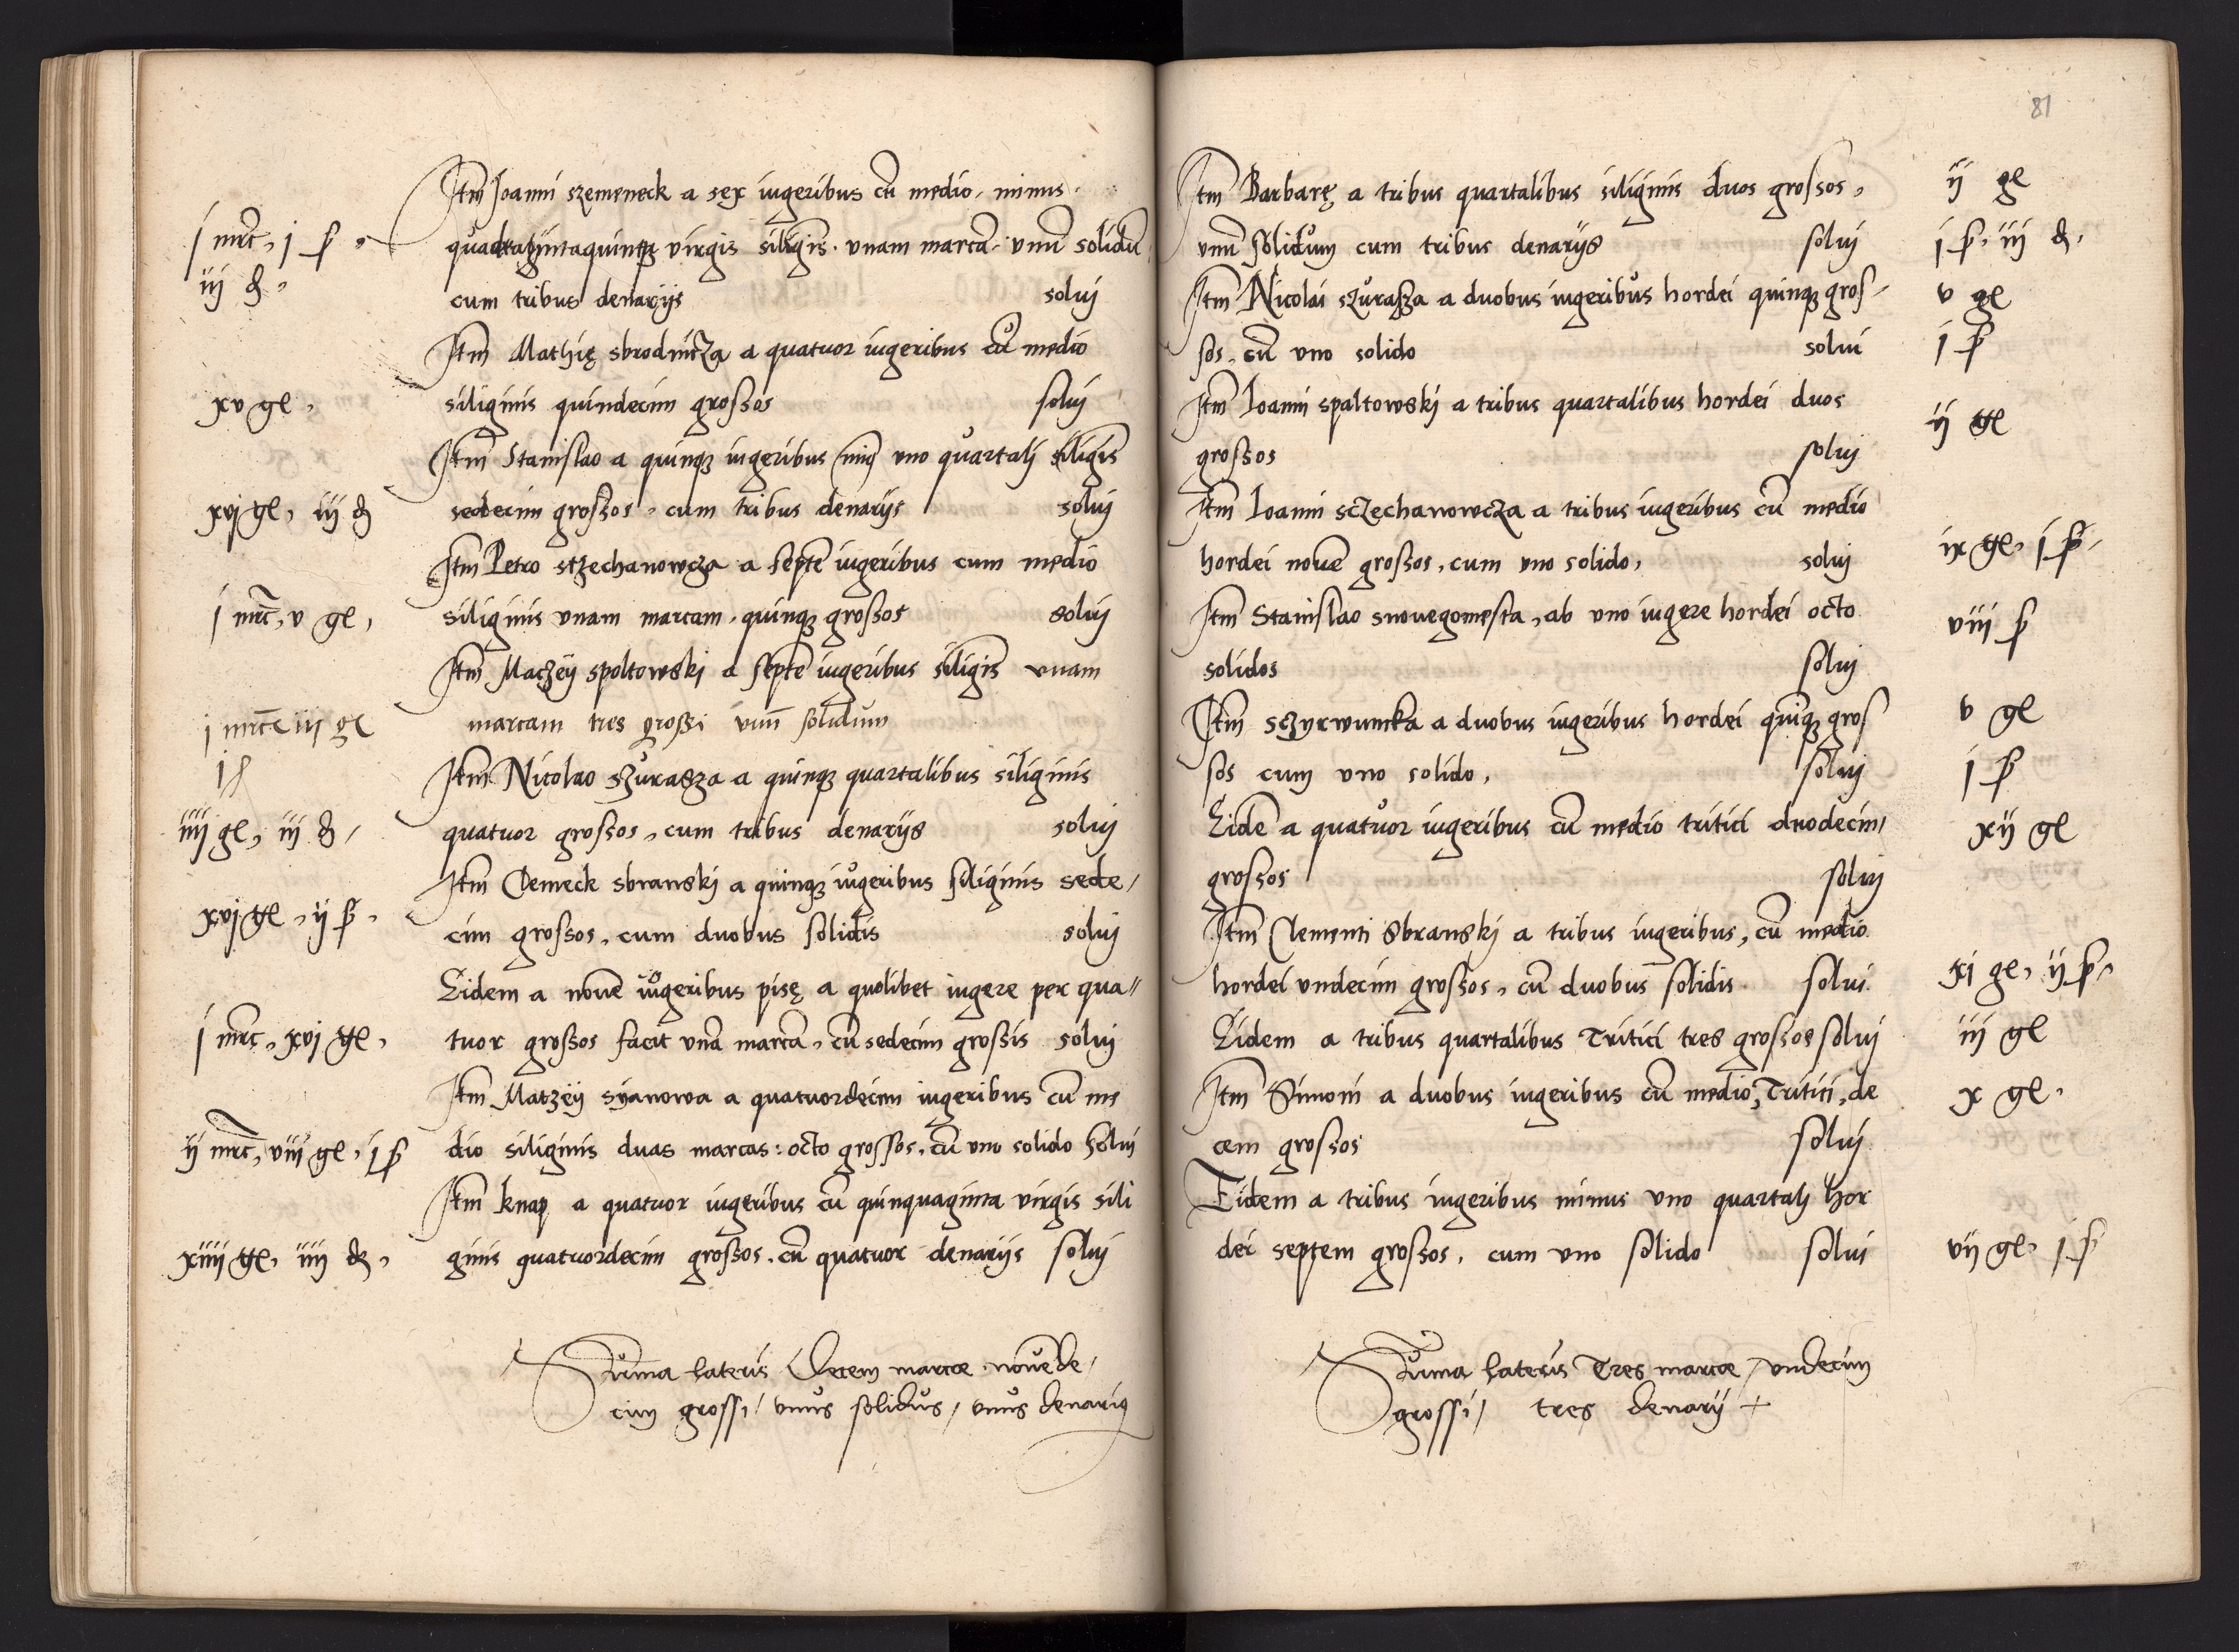 Itm Joanni szemeneck a sex iugeribus cu medio, minus
j mrc, j ſ, quadragintaquinqz virgis siliginis. unam marcā. vnū solidū
iij d, cum tribus denarijs soluj
Itm Mathię sbrodnicza a quatuor iugeribus cū medio
xv gl, siliginis quindecim grossos soluj
Itm Stanislao a quinqz iugeribus minꝰ vno quartalj siliginis
xvj gl, iij d sedecim grossos, cum tribus denarijs soluj
Itm Petro sczechanowcza a septē iugeribus cum medio
j mrc, v gl, siliginis vnam marcam, quinqz grossos soluj
Itm Maczeij spoltowskj a septē iugeribus siliginis vnam
j mrc iij gl marcam tres grossi vnū solidum
j ſ
Itm Nicolao szurasza a quinqz quartalibus siliginis
iiij gl, iij d, quatuor grossos, cum tribus denarijs soluj
Itm Clemeck sbranskj a quinqz iugeribus siliginis sede,
xvj gl, ij ſ, cim grossos, cum duobus solidis soluj
Eidem a nouē iugeribus pisę a quolibet iugere per qua
j mrc, xvj gl, tuor grossos facit vnā marcā, cū sedecim grossis soluj
Itm Matzeÿ syanowa a quatuordecim iugeribus cū me
ij mrc, viij gl, j ſ dio siliginis duas marcas: octo grossos, cū vno solido soluj
Itm knap a quatuor iugeribus cū quinquaginta virgis sili
xiiij gl, iiij d, ginis quatuordecim grossos, cū quatuor denarijs soluj
Suma lateris Decem marcae nouēde,
cim grossi, vnus solidus, vnus denariꝰ
81
Itm Barbarę a tribus quartalibus siliginis duos grossos, ij gl
vnū solidum cum tribus denarijs soluj j ſ, iij d,
Itm Nicolai szurasza a duobus iugeribus hordei quinqz gros v gl
sos, cū vno solido solui j ſ
Itm Ioanni spaltowskj a tribus quartalibus hordei duos ij gl
grossos soluj
Itm Ioanni sczechanowcza a tribus iugeribus cū medio
hordei nouē grossos, cum vno solido, soluj ix gl, j ſ,
Itm Stanislao snouegomesta, ab vno iugere hordei octo viij ſ
solidos soluj
Itm sczyrwuncka a duobus iugeribus hordei quinqz gros v gl
sos cum vno solido, soluj j ſ
Eidē a quatuor iugeribus cū medio tritici duodecim xij gl
grossos soluj
Itm Clementi Sbranskj a tribus iugeribus, cū medio
hordei vndecim grossos, cū duobus solidis soluj xj gl, ij ſ,
Eidem a tribus quartalibus Tritici tres grossos soluj iij gl
Itm Simoni a duobus iugeribus cū medio, Tritici, de x gl,
cem grossos soluj
Eidem a tribus iugeribus minus vno quartalj hor
dei septem grossos, cum vno solido soluj vij gl, j ſ
Suma lateris Tres marcae, vndecim
grossi, tres denarij